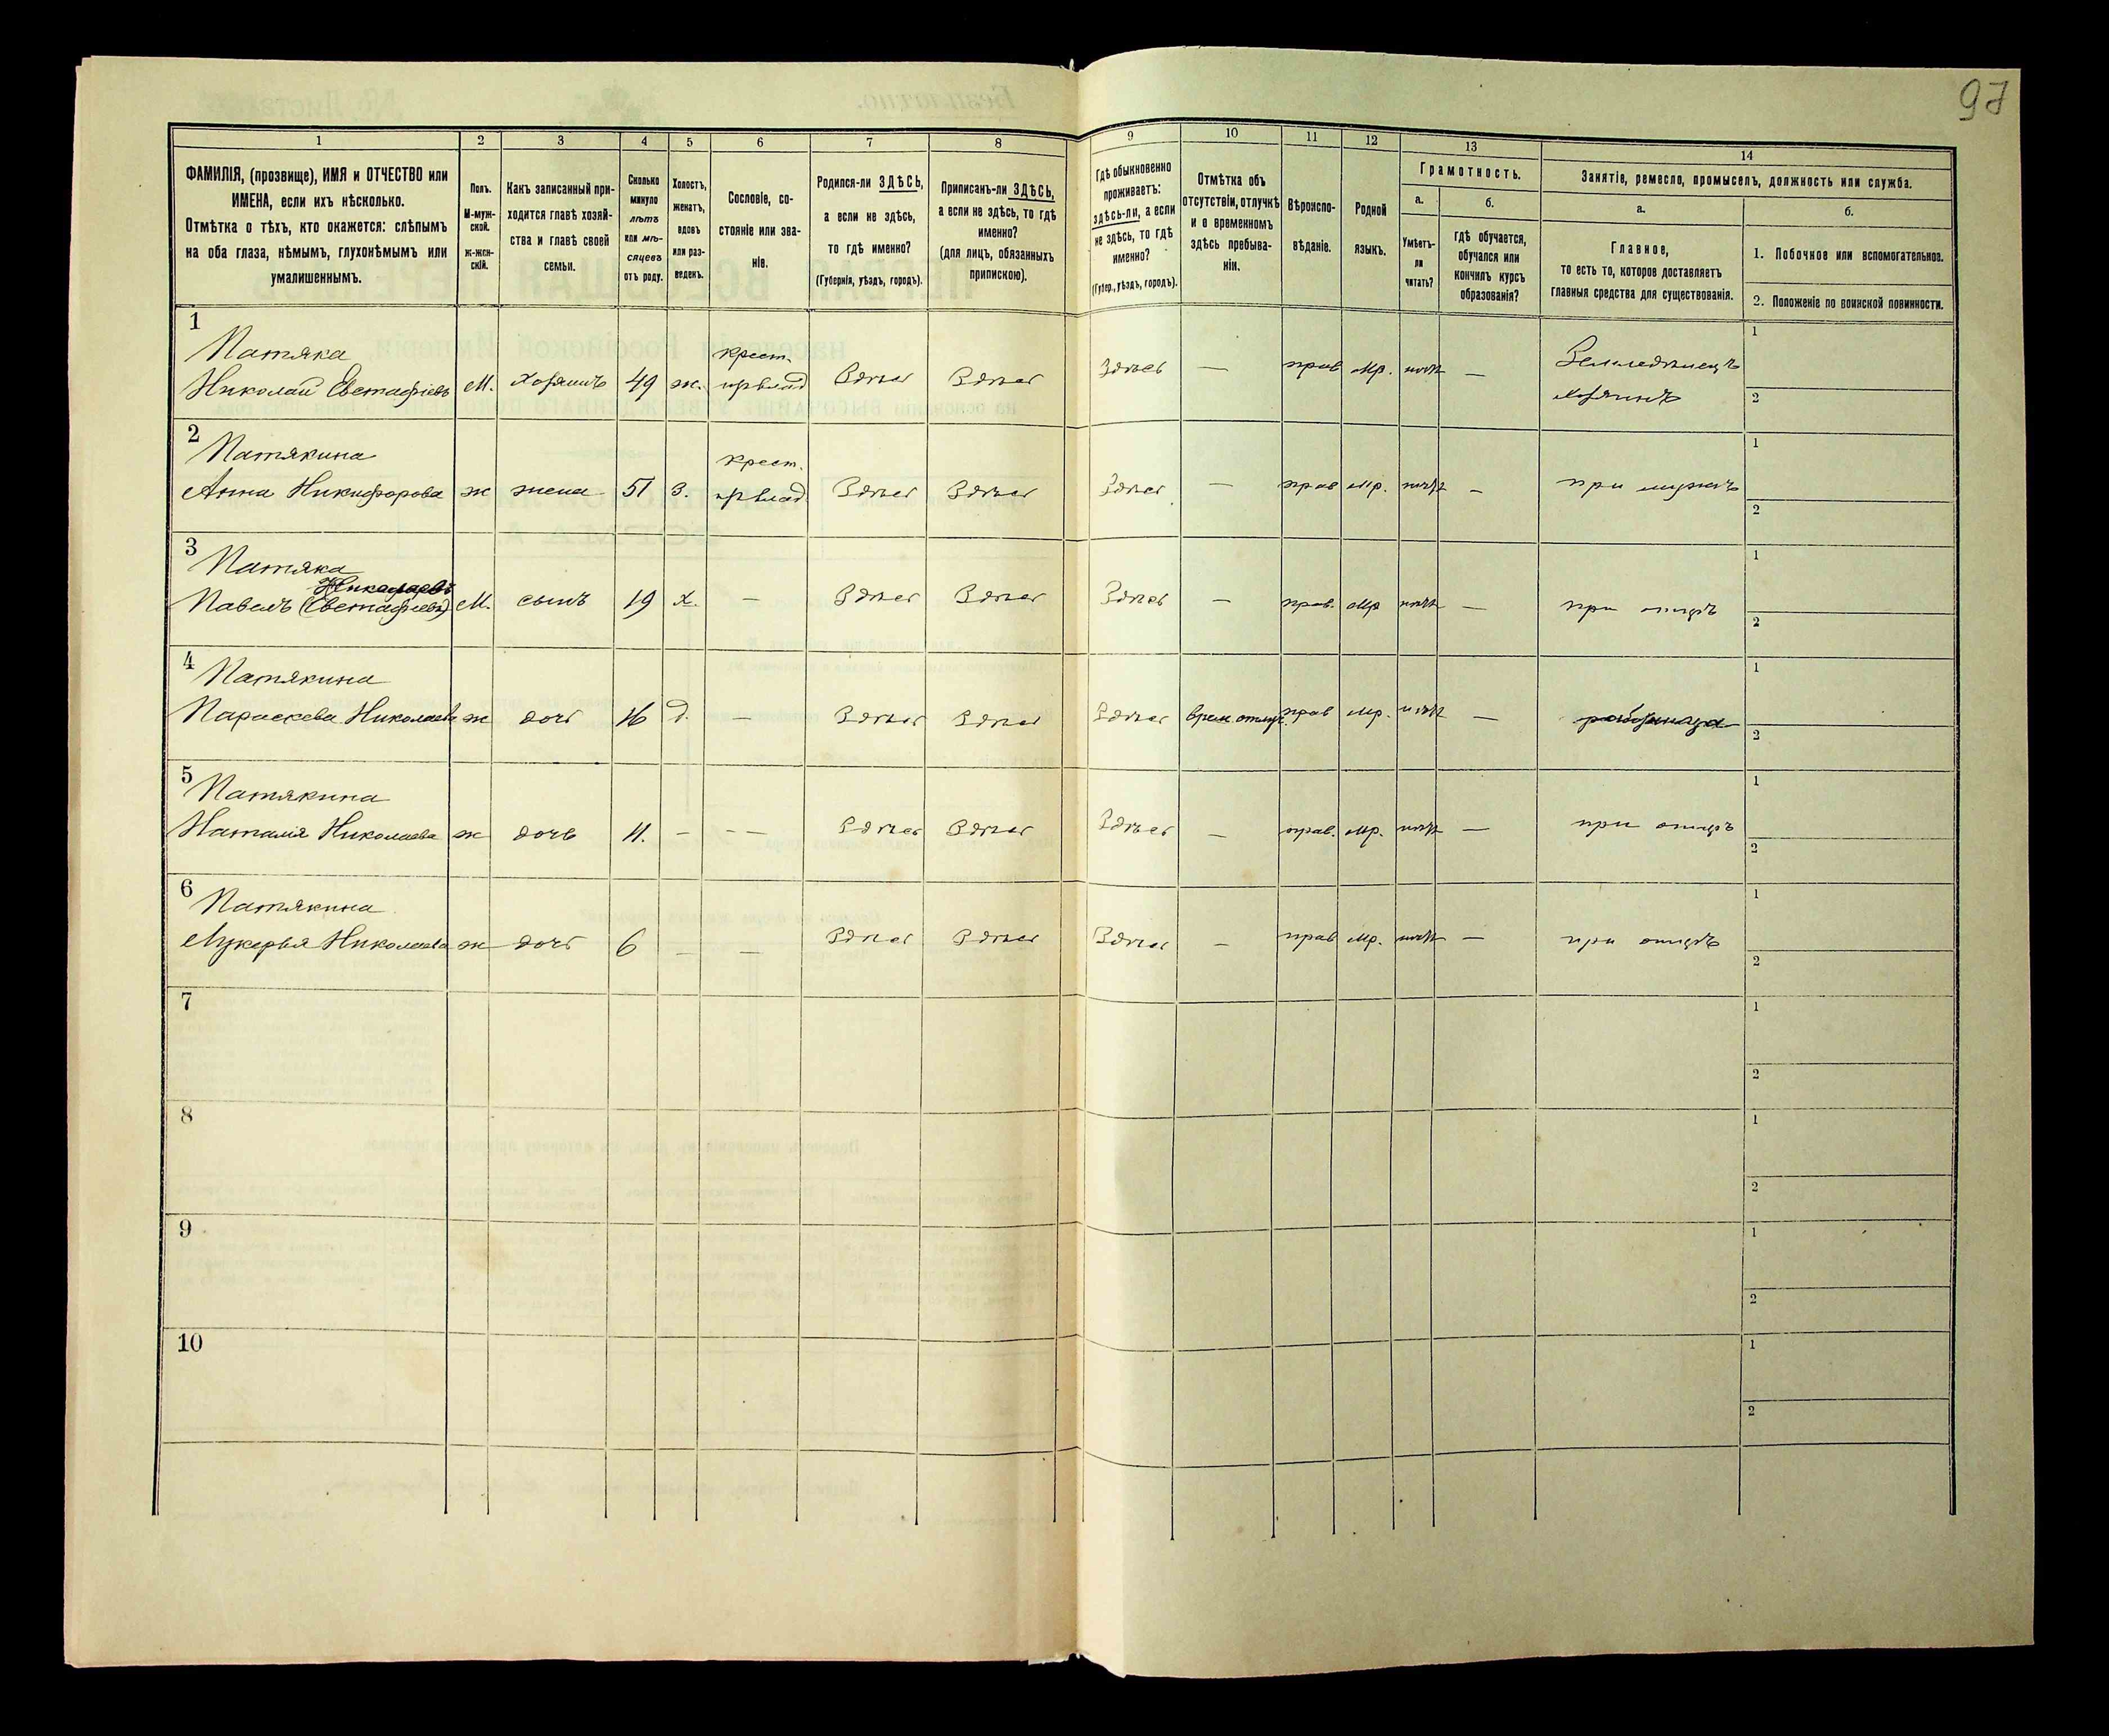 97
1
2
3
4
5
6
7
8
9
10
11
12
13
14
ФАМИЛІЯ, (прозвище), ИМЯ и ОТЧЕСТВО или
ИМЕНА, если ихъ нѣсколько.
Отмѣтка о тѣхъ, кто окажется: слѣпымъ
на оба глаза, нѣмымъ, глухонѣмымъ или
умалишеннымъ.
Полъ.
М-муж-
ской.
ж-жен-
скій.
Какъ записанный при-
ходится главѣ хозяй-
ства и главѣ своей
семьи.
Сколько
минуло
лѣтъ
или мѣ-
сяцевъ
отъ роду.
Холостъ,
женатъ,
вдовъ
или раз-
веденъ.
Сословіе, со-
стояніе или зва-
ніе.
Родился-ли ЗДѢСЬ,
а если не здѣсь,
то гдѣ именно?
(Губернія, уѣздъ, городъ).
Приписанъ-ли ЗДѢСЬ,
а если не здѣсь, то гдѣ
именно?
(для лицъ, обязанныхъ
припискою).
Гдѣ обыкновенно
проживаетъ:
здѣсь-ли, а если
не здѣсь, то гдѣ
именно?
(Губер., уѣздъ, городъ).
Отмѣтка объ
отсутствіи, отлучкѣ
и о временномъ
здѣсь пребыва-
ніи.
Вѣроиспо-
вѣданіе.
Родной
языкъ.
Грамотность.
а.
Умѣетъ-
ли
читать?
б.
гдѣ обучается,
обучался или
кончилъ курсъ
образованія?
Занятіе, ремесло, промыселъ, должность или служба.
а.
Главное,
то есть то, которое доставляетъ
главныя средства для существованія.
б.
1. Побочное или вспомогательное.
2. Положеніе по воинской повинности.
1
Патяка
Николай Евстафіевъ М. Хозяинъ 49 ж. крест. Здѣсь Здѣсь Здѣсь — прав мр. — Земледѣлецъ
хозяинъ
1
2
2
Патякина
Анна Никифорова ж жена 51 З. крест. Здѣсь Здѣсь Здѣсь — прав мр. — при мужѣ
1
2
3
Патяка
Николаевъ
Павелъ (Евстафіевъ) М. сынъ 19 х. — Здѣсь Здѣсь Здѣсь — прав. мр — при отцѣ
1
2
4
Патякина
Параскева Николаева ж дочь 16 д. — Здѣсь Здѣсь Здѣсь врем. отлуч. прав мр. —
1
2
5
Патякина
Наталія Николаева ж дочь 11. — — — Здѣсь Здѣсь Здѣсь — прав. мр. — при отцѣ
1
2
6
Патякина
Лукерья Николаева ж дочь 6 — — Здѣсь Здѣсь Здѣсь — прав мр. — при отцѣ
1
2
7
1
2
8
1
2
9
1
2
10
1
2